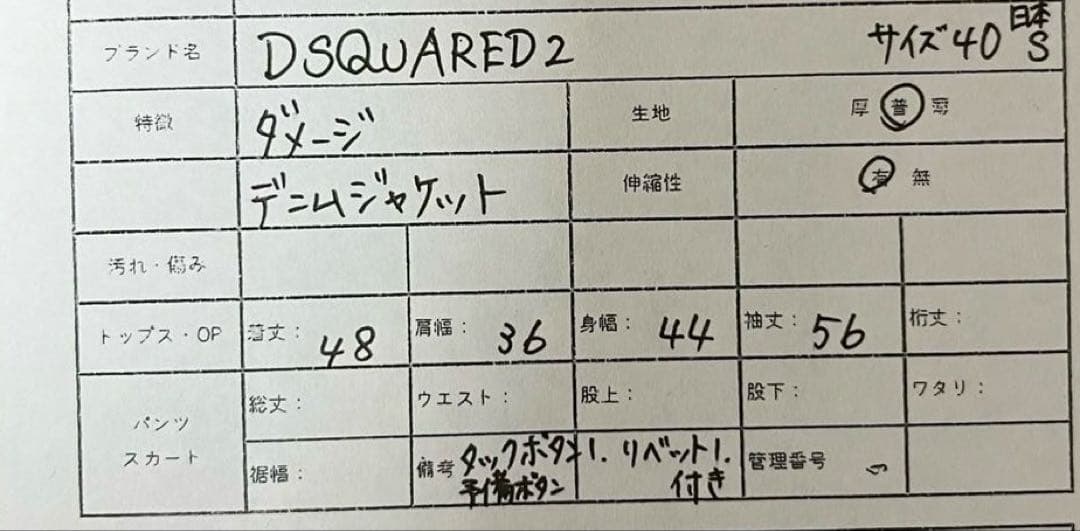 ブランド名 DSQUARED2 サイズ40 日本S
特徴 ダメージ 生地 厚 普 薄
デニムジャケット 伸縮性 有 無
汚れ・傷み
トップス・OP 着丈: 48 肩幅: 36 身幅: 44 袖丈: 56 裄丈:
パンツ スカート 総丈: ウエスト: 股上: 股下: ワタリ:
裾幅: 備考 タックボタン1. リベット1. 管理番号
予備ボタン 付き